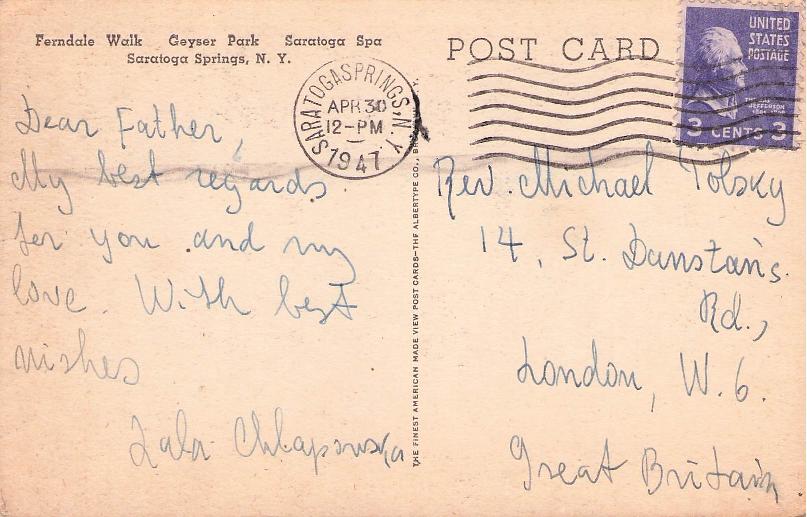 Ferndale Walk Geyser Park Saratoga Spa
Saratoga Springs, N. Y.
POST CARD
UNITED
STATES
POSTAGE
3 CENTS 3
SARATOGA SPRINGS, N.Y.
APR 30
12-PM
1947
THE FINEST AMERICAN MADE VIEW POST CARDS—THE ALBERTYPE CO., BR
Dear Father,
My best regards
for you and my
love. With best
wishes
Lala
Rev. Michael Polsky
14, St. Dunstan's
Rd.,
London, W. 6.
Great Britain